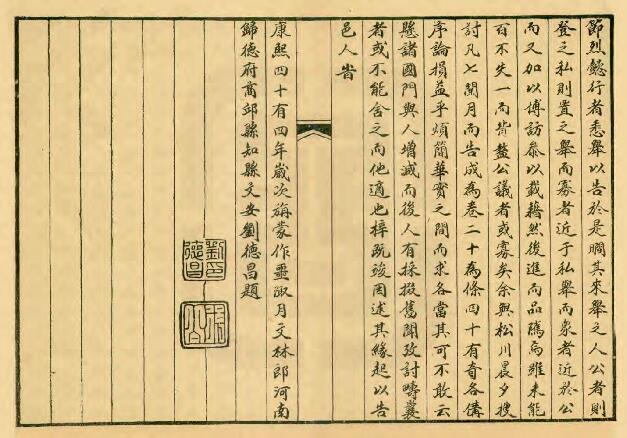 節烈懿行者悉舉以告於是瞷其來舉之人公者則
登之私則置之舉而寡者近于私舉而衆者近於公
而又加以博訪叅以載籍然後進而品隲焉雖未能
百不失一而背盭公議者或寡矣余與松川晨夕搜
討凡七閱月而告成為卷二十為條四十有奇各僃
序論損益乎煩簡華實之間而求各當其可不敢云
懸諸國門與人增減而後人有採掇舊聞攷討疇曩
者或不能舍之而他適也梓既竣因述其緣起以告
邑人旹
康熙四十有四年歲次旃蒙作噩淑月文林郎河南
歸德府商邱縣知縣文安劉德昌題
劉印德昌